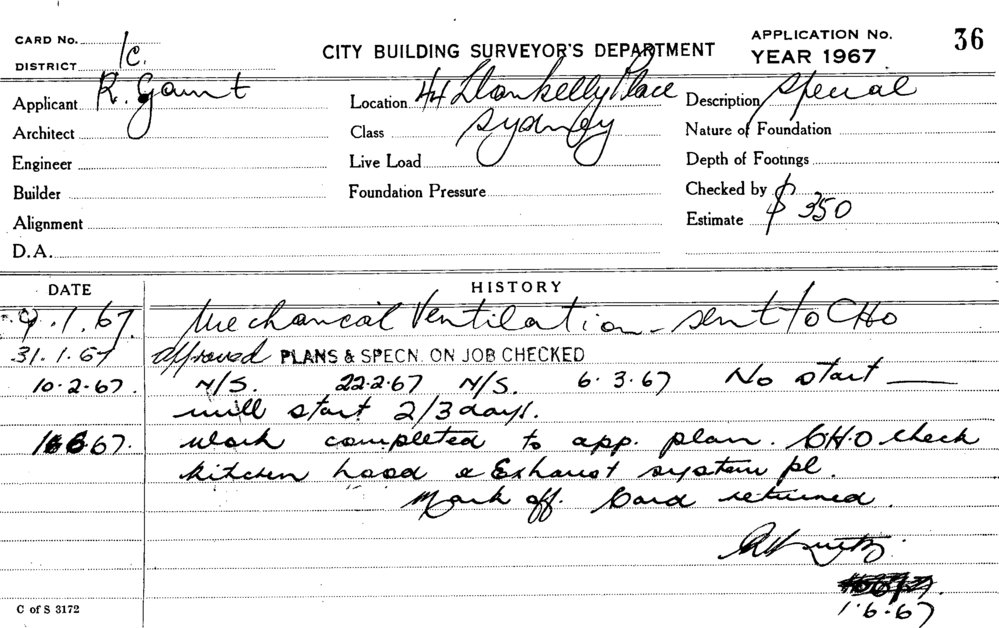 CARD No. 1c.
DISTRICT
CITY BUILDING SURVEYOR'S DEPARTMENT
APPLICATION No. 36
YEAR 1967
Applicant R. Gaunt
Location 44 Llankelly Place
Description Special
Architect
Class Sydney
Nature of Foundation
Engineer
Live Load
Depth of Footings
Builder
Foundation Pressure
Checked by
Alignment
Estimate $ 350
D.A.
DATE HISTORY
9.1.67. Mechanical Ventilation - sent to CHO
31.1.67 approved PLANS & SPECN. ON JOB CHECKED
10.2.67. N/S. 22.2.67 N/S. 6.3.67 No start —
will start 2/3 days.
1.6.67. work completed to app. plan. C.H.O check
kitchen hood & Exhaust system pl.
Mark off. Card returned
1.6.67
C of S 3172